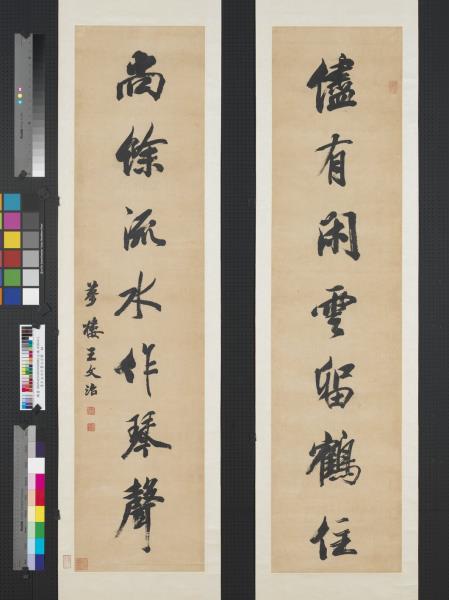 儘有閑雲留鶴住
尚餘流水作琴聲
夢樓王文治